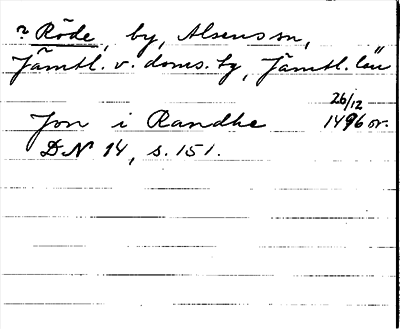 ? Röde, by, Alsens sn,
Jämtl. v. doms. tg, Jämtl. län
Jon i Randhe 26/12 1496 or.
DN 14, s. 151.